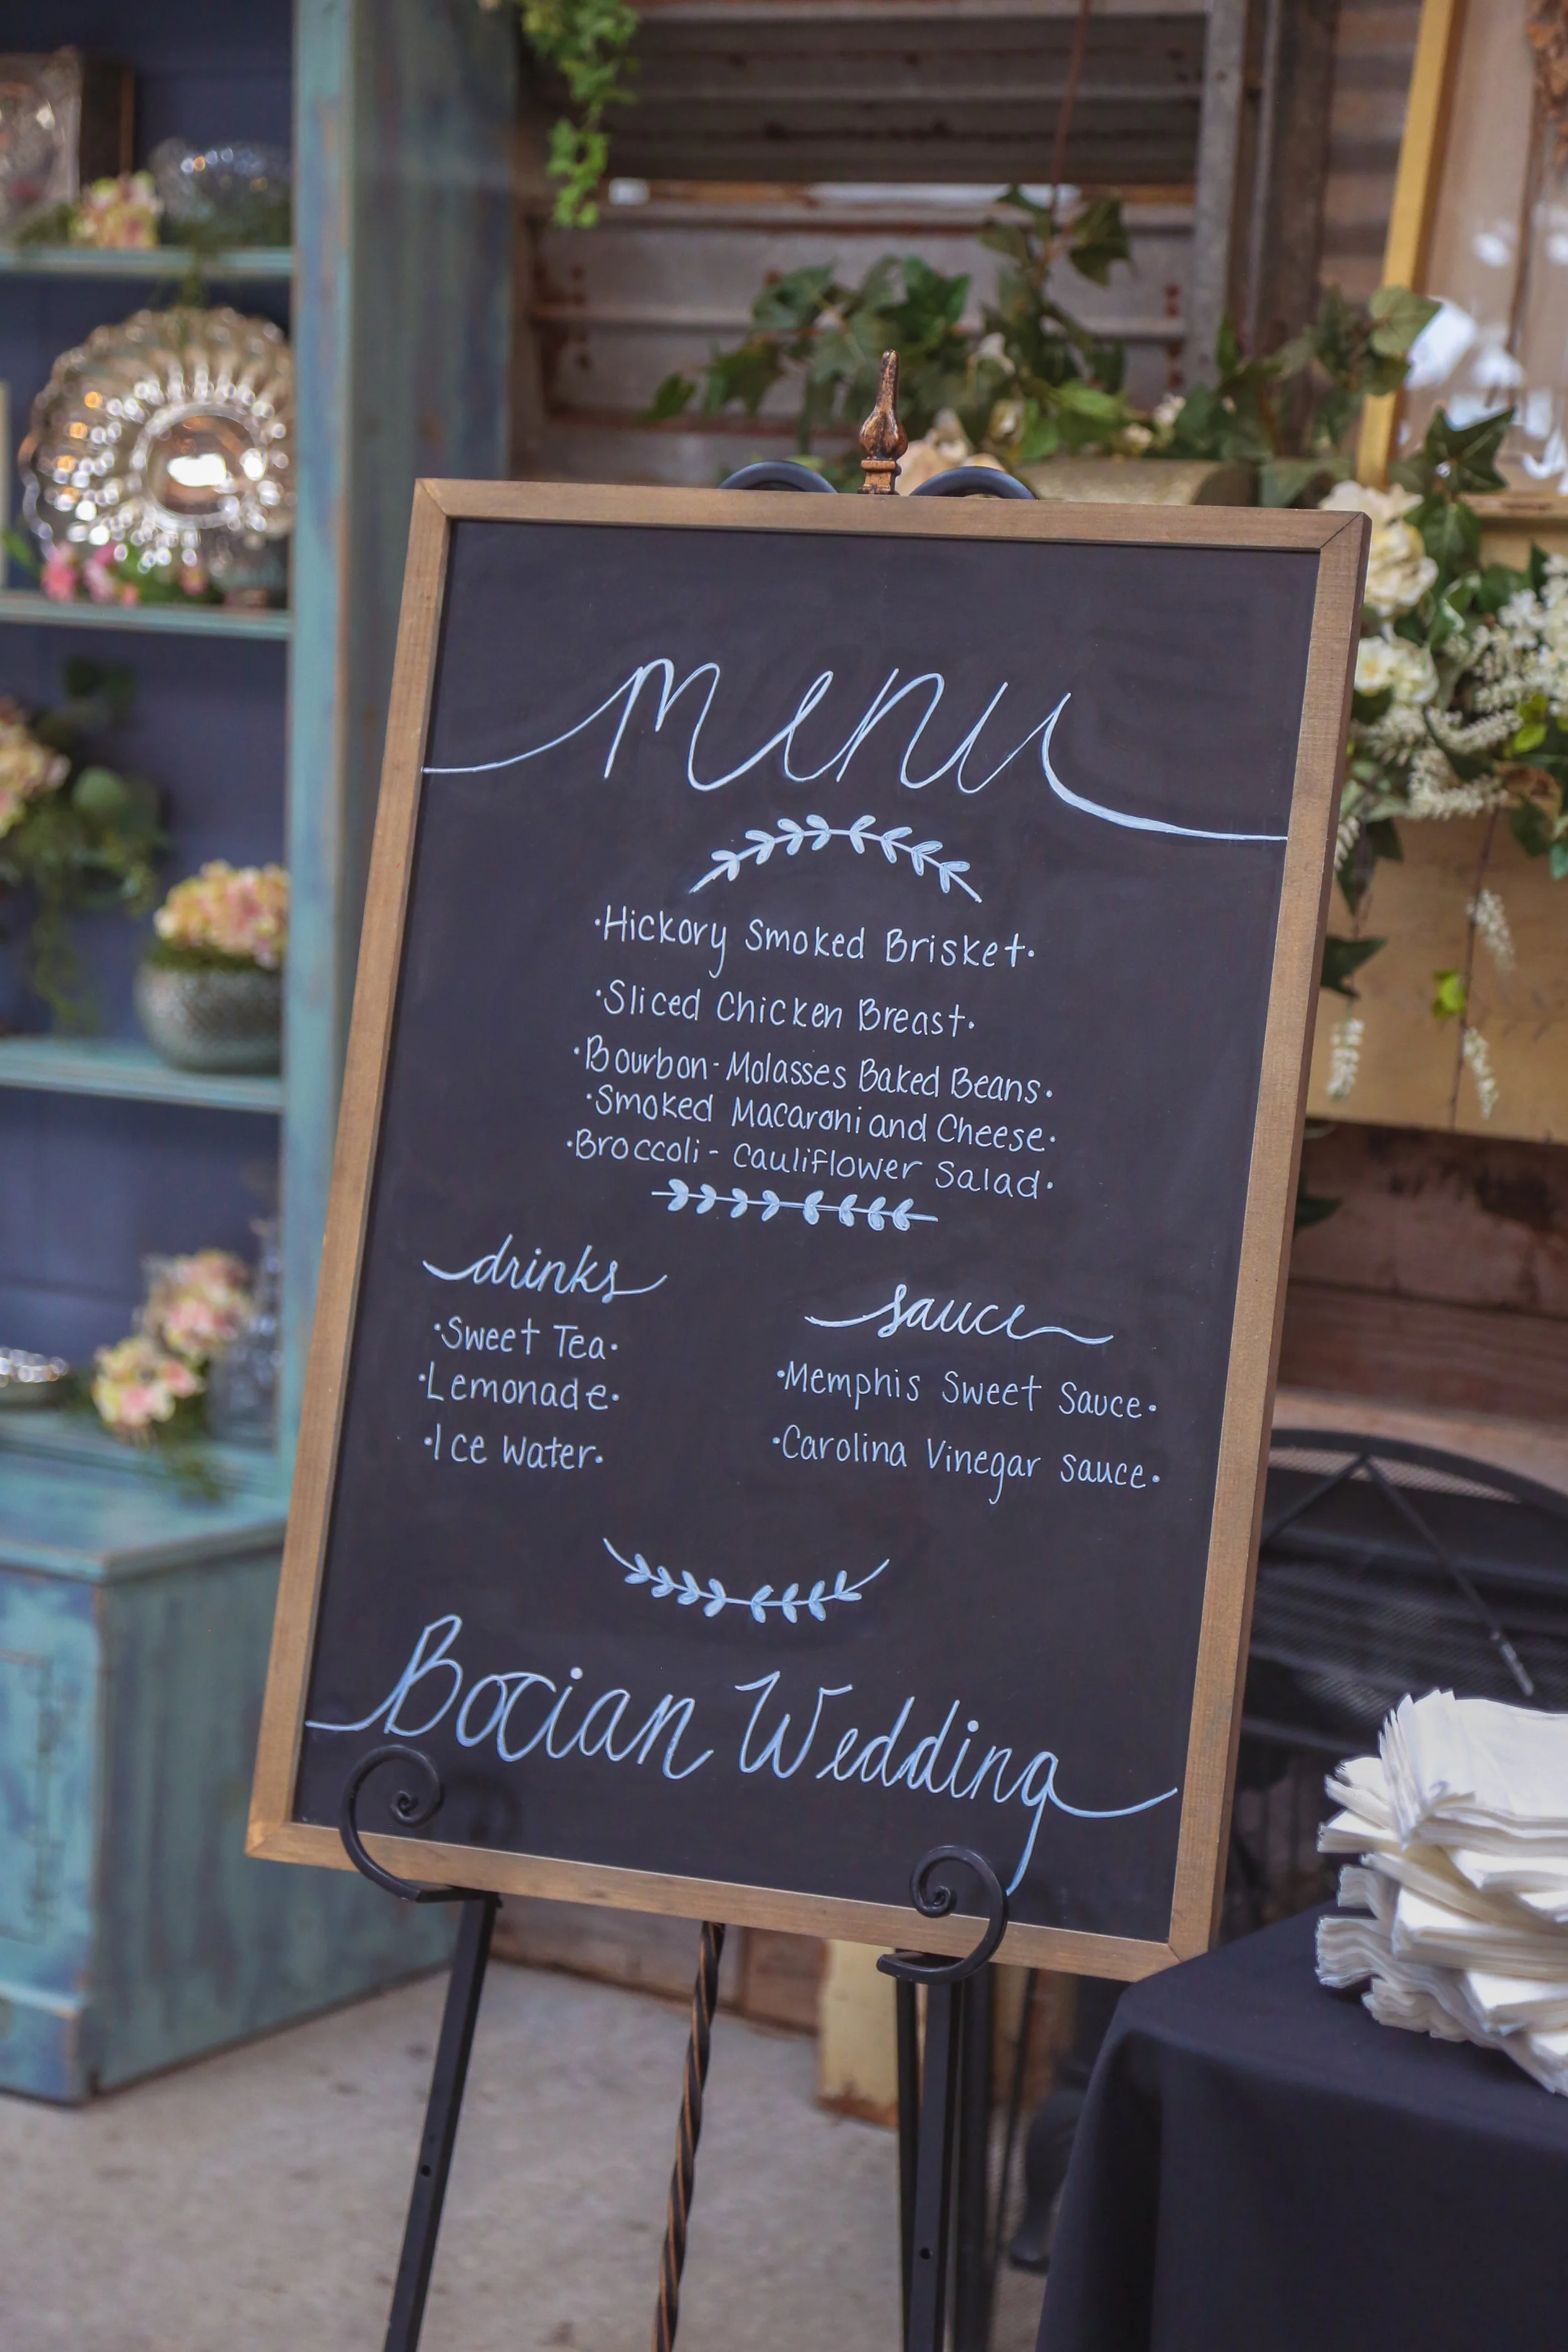 menu
·Hickory Smoked Brisket·
·Sliced Chicken Breast·
·Bourbon-Molasses Baked Beans·
·Smoked Macaroni and Cheese·
·Broccoli-Cauliflower Salad·
drinks
·Sweet Tea·
·Lemonade·
·Ice Water·
sauce
·Memphis Sweet Sauce·
·Carolina Vinegar Sauce·
Bocian Wedding